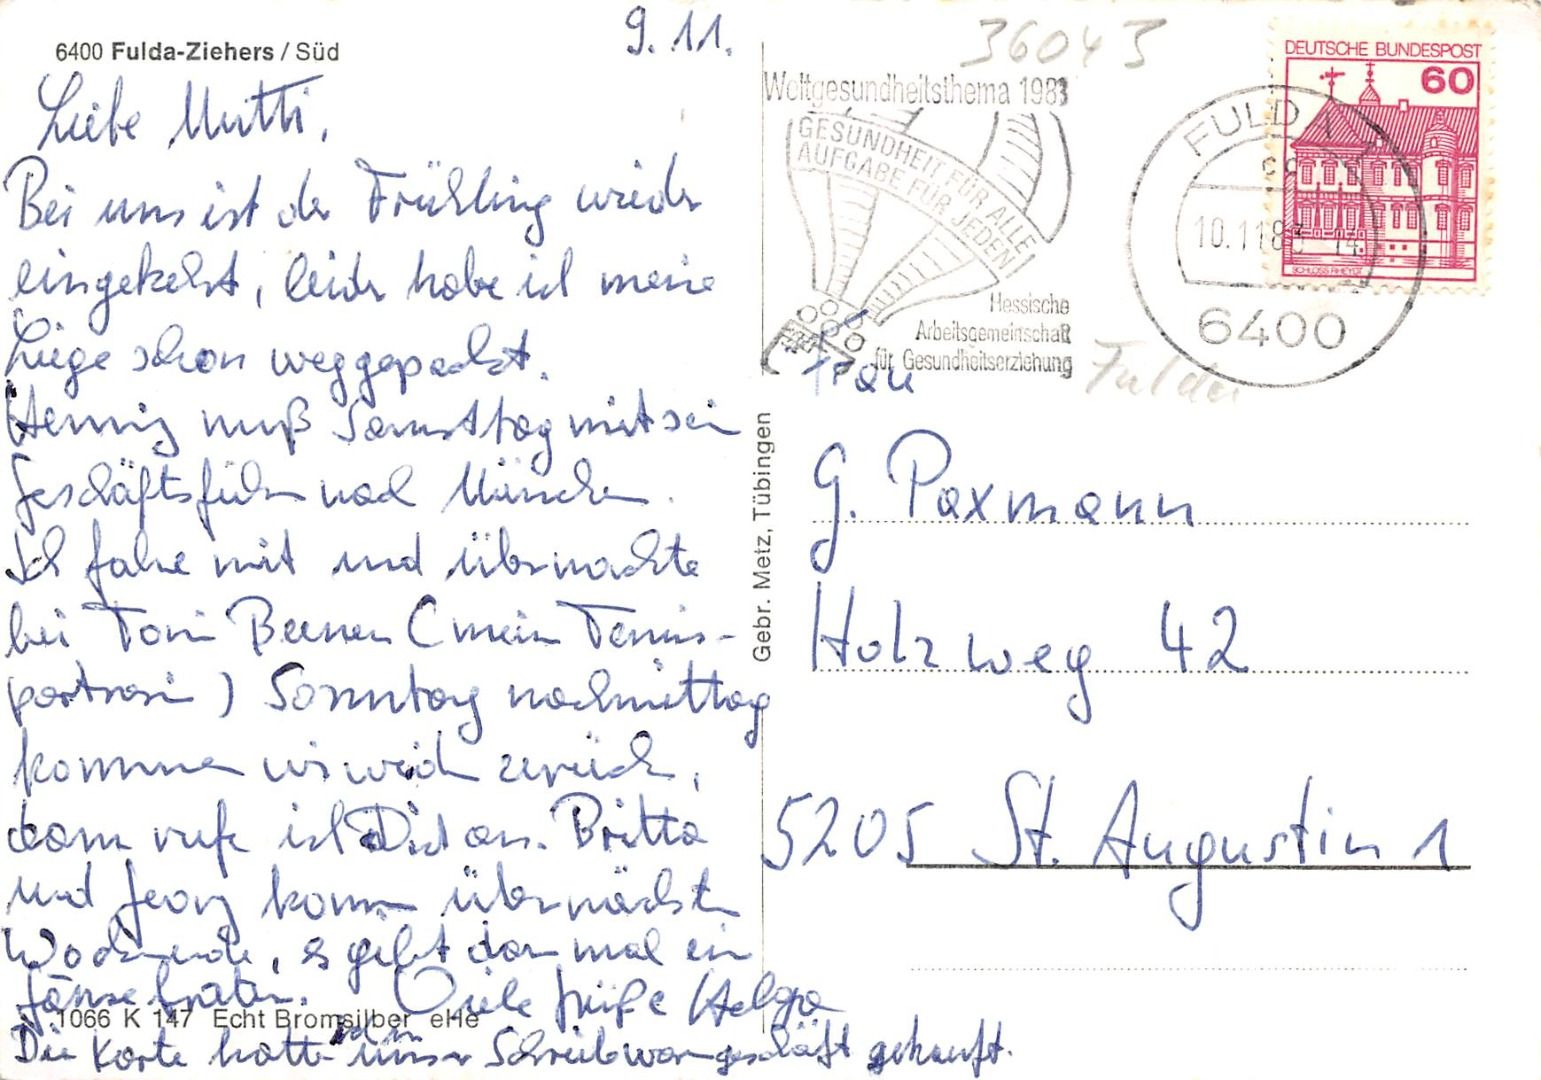 6400 Fulda-Ziehers / Süd
9.11.
Liebe Mutti,
Bei uns ist der Frühling wieder
eingekehrt, leider habe ich meine
Liege schon weggepackt.
Hennig muß Samstag mit sein
Geschäftsführer nach München.
Ich fahre mit und übernachte
bei Toni Beenen (mein Tennis-
partnerin) Sonntag nachmittag
kommen wir wieder zurück,
dann rufe ich Dich an. Britta
und Georg kommen übernächstes
Wochenende, es gibt dann mal ein
Gänsebraten. Viele Grüße Helga
Die Karte hatte ich in unser Schreibwarengeschäft gekauft.
1066 K 147 Echt Bromsilber eHe
Gebr. Metz, Tübingen
36043
Weltgesundheitsthema 1983
GESUNDHEIT FÜR ALLE
AUFGABE FÜR JEDEN
Hessische
Arbeitsgemeinschaft
für Gesundheitserziehung
FULDA
cc
10.11.83 14
6400
Fulda
DEUTSCHE BUNDESPOST
60
SCHLOSS RHEYDT
Frau
G. Paxmann
Holzweg 42
5205 St. Augustin 1